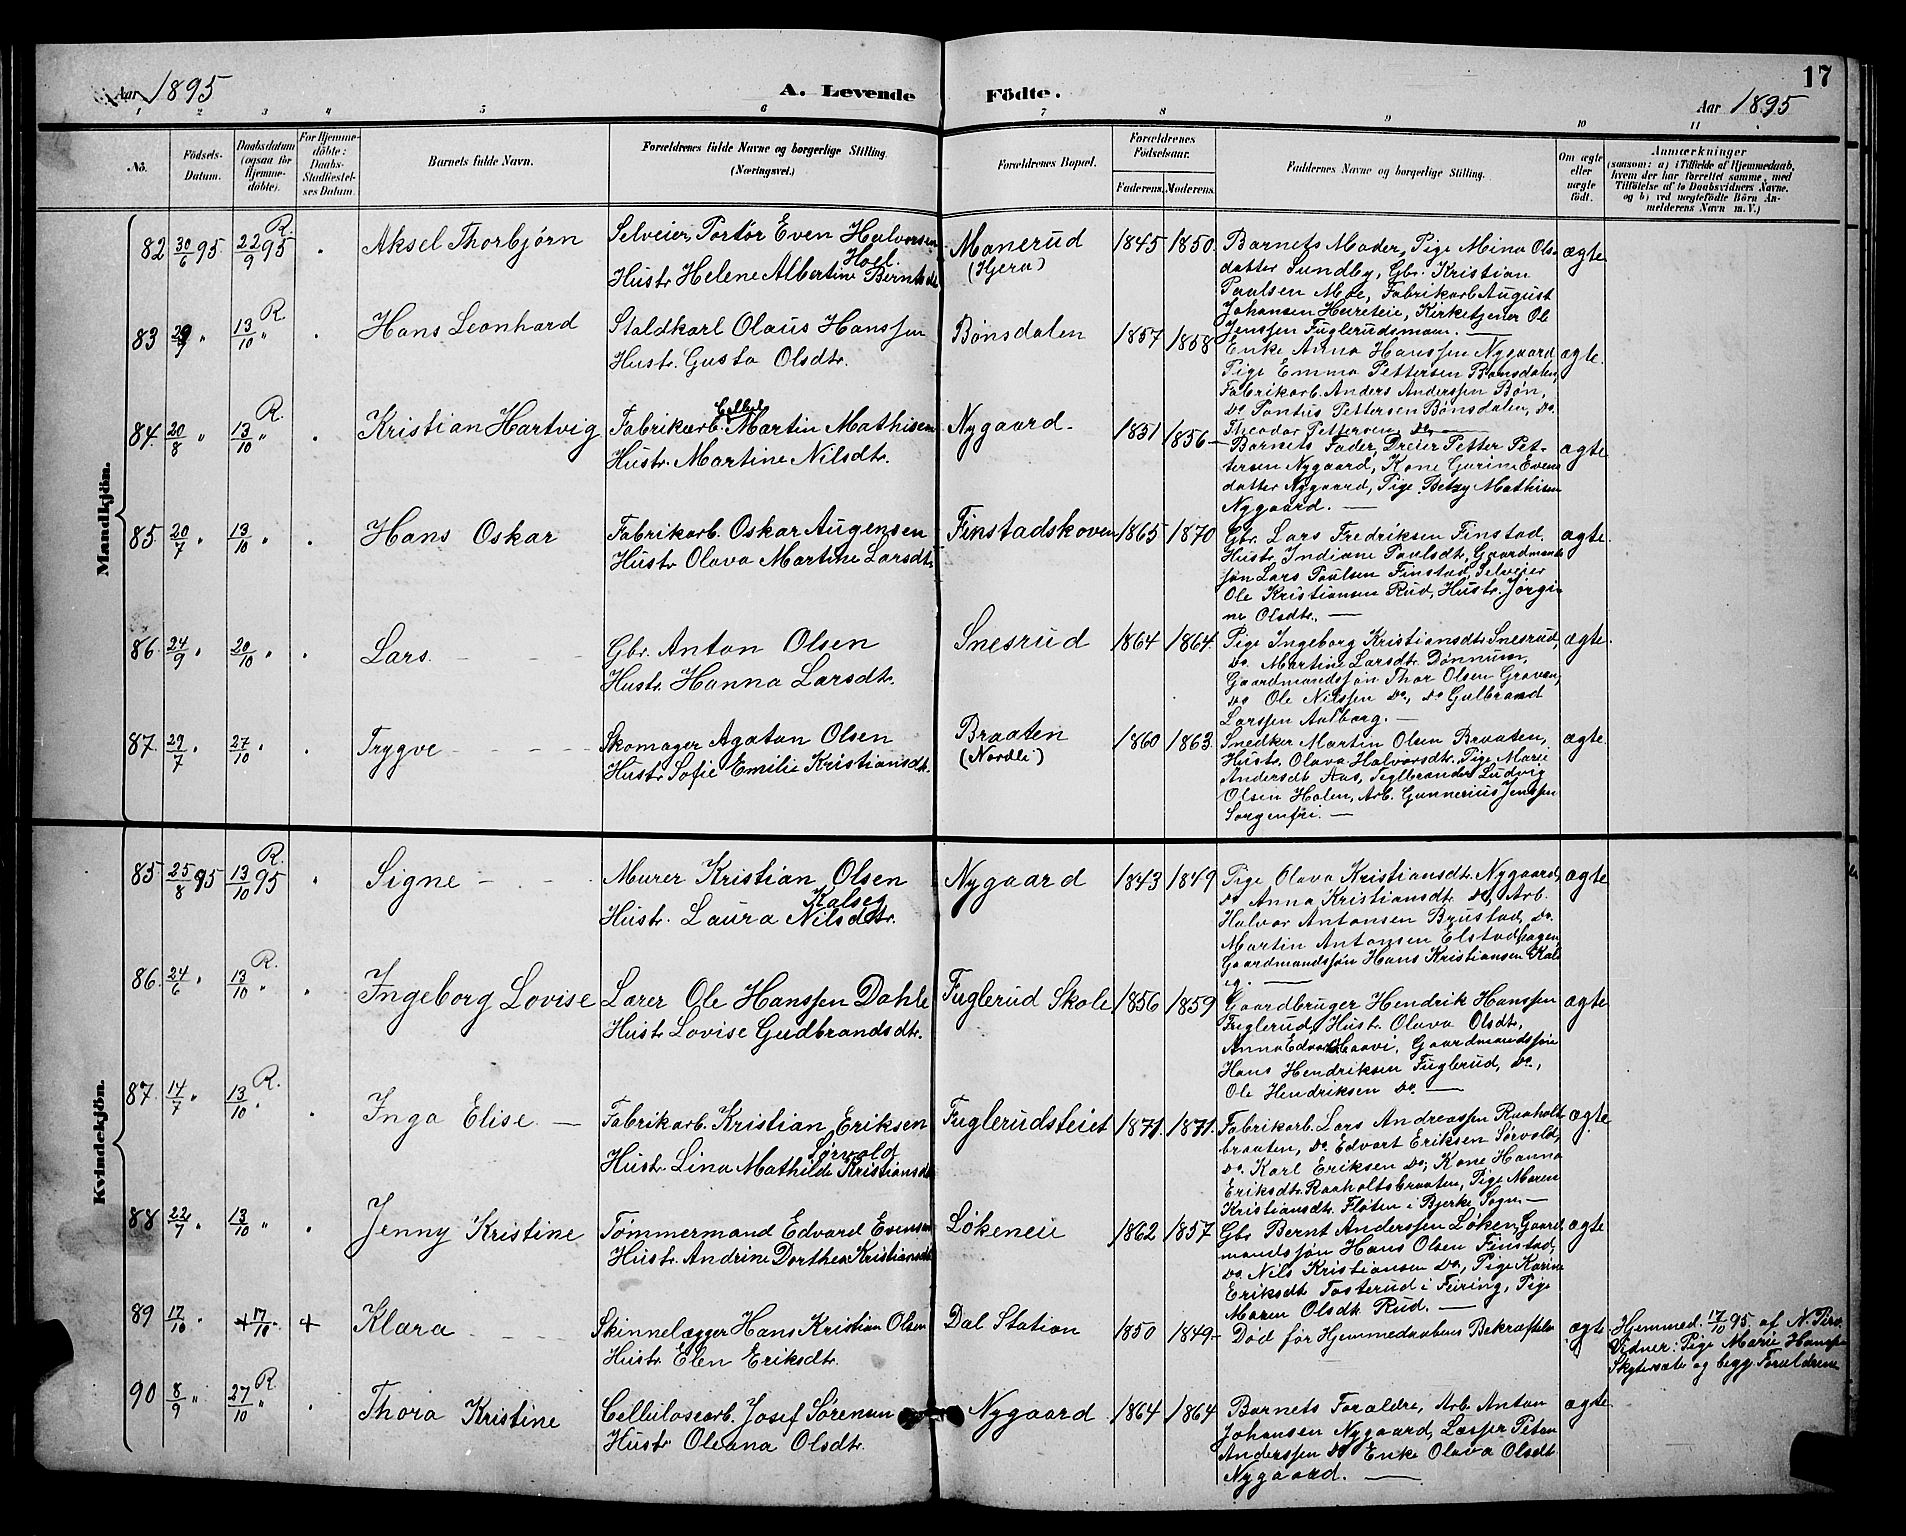 Aar 1895
A. Levende Födte.
17
Aar 1895
1 2 3 4 5 6 7 8 9 10 11
No.
Födsels-Datum.
Daabsdatum (ogsaa for Hjemme-döbte).
For Hjemme-döbte: Daabs-Stadfæstel-ses Datum.
Barnets fulde Navn.
Forældrenes fulde Navne og borgerlige Stilling. (Næringsvei.)
Forældrenes Bopæl.
Forældrenes Födselsaar.
Faderens. Moderens.
Faddernes Navne og borgerlige Stilling.
Om ægte eller uægte födt.
Anmærkninger
(saasom: a) i Tilfælde af Hjemmedaab, hvem der har forrettet samme, med Tilföielse af to Daabsvidners Navne, og b) ved uægtefödte Börn An-melderens Navn m. V.)
Mandkjön.
82 30/6 95 22/9 95 R. Aksel Thorbjørn
Selveier, Portør Even Halvorsen Hoel
Hustr. Helene Albertine Berntsdt.
Manerud (Hjera) 1845 1850
Barnets Moder, Pige Mina Ols-
datter Sundby, Gbr. Kristian
Paulsen Moe, Fabrikarb. August
Johansen Hureteie, Kirketjener Ole
Jenssen Fuglerudsmoen. —
ægte
83 29/7 " 13/10 " R. Hans Leonhard
Staldkarl Olaus Hanssen
Hustr. Gusta Olsdtr.
Bønsdalen 1857 1858
Enke Anna Hanssen Nygaard,
Pige Emma Pettersen Bønsdalen,
Fabrikarb. Anders Anderssen Bøn,
Do Pontus Pettersen Bønsdalen, Do.
Theodor Pettersen Do —
ægte.
84. 20/8 " 13/10 " R. Kristian Hartvig
Fabrikarb. Cellul. Martin Mathisen
Hustr. Martine Nilsdtr.
Nygaard. 1851 1856
Barnets Fader, Dreier Petter Pet-
tersen Nygaard, Kone Gurine Evens
datter Nygaard, Pige Betzy Mathisen
Nygaard. —
ægte
85. 20/7 " 13/10 " Hans Oskar
Fabrikarb. Oskar Augensen
Hustr. Olava Martine Larsdtr.
Finstadskoven 1865 1870
Gbr. Lars Fredriksen Finstad,
Hustr. Indiane Paulsdt., Gaardmands
søn Lars Paulsen Finstad, Selveier
Ole Kristiansen Rud, Hustr. Jørgi-
ne Olsdtr. —
ægte.
86. 24/9 " 20/10 " Lars.
Gbr. Anton Olsen
Hustr. Hanna Larsdtr.
Snesrud 1864 1864.
Pige Ingeborg Kristiansdtr. Snesrud,
Do. Martine Larsdtr. Dønnum,
Gaardmandssøn Thor Olsen Graven,
Do Ole Nilssen Do, Do Gulbrand
Larssen Aalborg. —
ægte.
87. 29/7 " 27/10 " Trygve
Skomager Agaton Olsen
Hustr. Sofie Emilie Kristiansdtr.
Braaten (Nordli) 1860 1863.
Snedker Martin Olsen Braaten,
Hustr. Olava Halvorsdtr. Pige Marie
Andersdt. Aas, Teglbrænder Ludvig
Olsen Holen, Arb. Gunnerius Jenssen
Sorgenfri. —
ægte.
Kvindekjön.
85 25/8 95 13/10 95 R. Signe
Murer Kristian Olsen Kalseg
Hustr. Laura Nilsdtr.
Nygaard 1843 1849
Pige Olava Kristiansdt. Nygaard,
Do Anna Kristiansdt. Do, Arb.
Halvor Antonsen Brustad, Do.
Martin Antonsen Elstadhagen,
Gaardmandssøn Hans Kristiansen Kals
eg. —
ægte
86. 24/6 " 13/10 " R. Ingeborg Lovise
Lærer Ole Hanssen Dahle
Hustr. Lovise Gudbrandsdtr.
Fuglerud Skole 1856 1859
Gaardbruger Hendrik Hanssen
Fuglerud, Hustr. Olava Olsdtr,
Anna Haavi, Gaardmandssøn
Hans Hendriksen Fuglerud, Do.,
Ole Hendriksen Do. —
ægte
87. 14/7 " 13/10 " R. Inga Elise
Fabrikarb. Kristian Eriksen Sørvold
Hustr. Lina Mathilde Kristiansdt.
Fuglerudsteiet 1871. 1871.
Fabrikarb. Lars Andreassen Raaholt
braaten, Do. Edvart Eriksen Sørvold,
Do. Karl Eriksen Do, Kone Hanna
Eriksdtr. Raaholtsbraaten, Pige Maren
Kristiansdt. Fløten i Bjerke Sogn. —
ægte
88 22/7 " 13/10 " Jenny Kristine
Tømmermand Edvard Evensen
Hustr. Andrine Dorthea Kristiansdt.
Løkeneie 1862 1857
Gbr. Bernt Anderssen Løken, Gaard
mandssøn Hans Olsen Finstad,
Do. Nils Kristiansen Do, Pige Karine
Eriksdt. Tosterud i Feiring, Pige
Maren Olsdt. Rud. —
ægte
89 17/10 " + 17/10 " + Klara
Skinnelægger Hans Kristian Olsen
Hustr. Elen Eriksdtr.
Dal Station 1850 1849
Død før Hjemmedaabens Bekræftelse
ægte
Hjemmed. 17/10 95 af N.
Vidner: Pige Marie Hanssen
og begge Forældrene
90 8/9 " 27/10 " R. Thora Kristine
Cellulosearb. Josef Sørensen
Hustr. Oleana Olsdtr.
Nygaard 1864 1864
Barnets Forældre, Arb. Anton
Johansen Nygaard, Læsser Peter
Anderssen Do Enke Olava Olsdt.
Nygaard. —
ægte